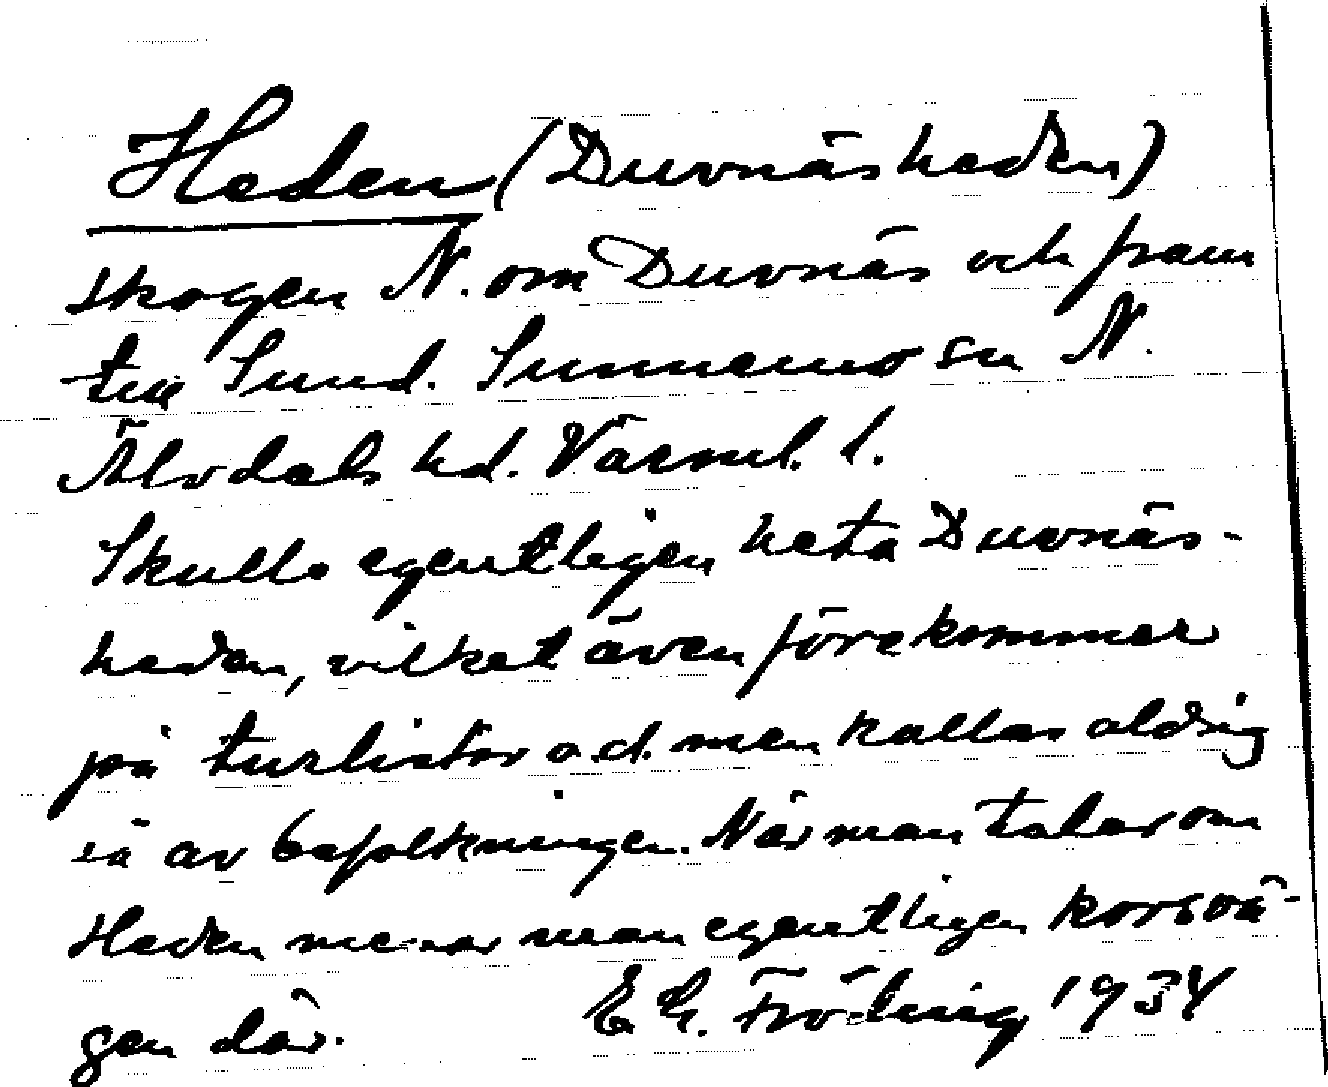 Heden (Duvnäsheden)
skogen N. om Duvnäs och fram
till Sund. Sunnemo sn N.
Älvdals hd. Värml. l.
Skulle egentligen heta Duvnäs-
heden, vilket även förekommer
på turlistor o.d. men kallas aldrig
så av befolkningen. När man talar om
Heden menar man egentligen korsvä-
gen där. E G. Fröding 1934